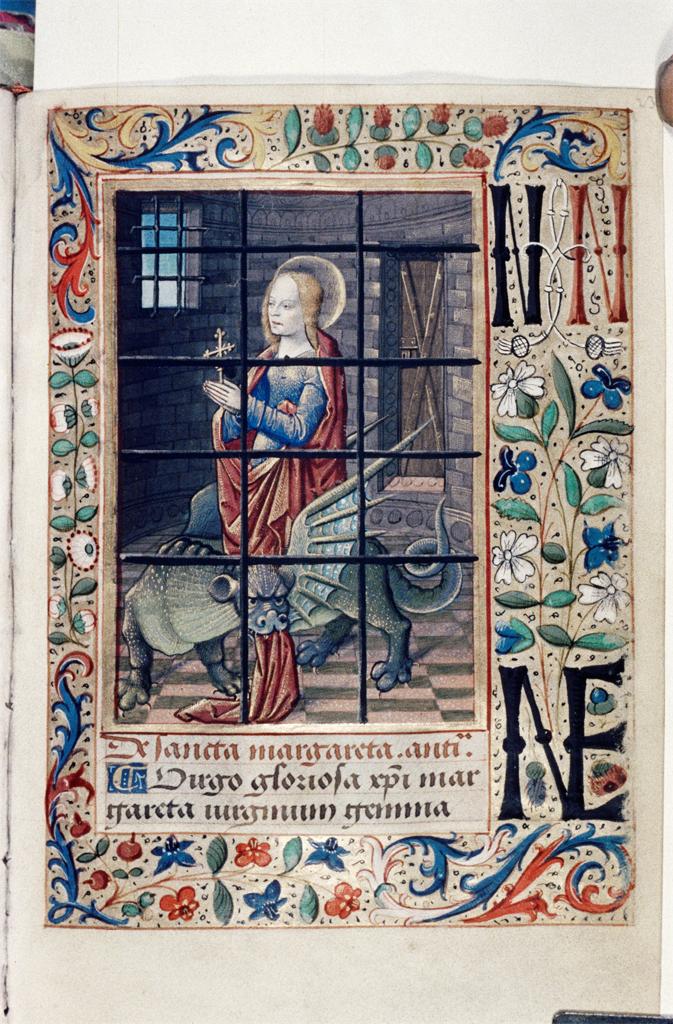 N N
NE
De sancta margareta. anti.
Virgo gloriosa xpi mar
gareta uirginum gemma